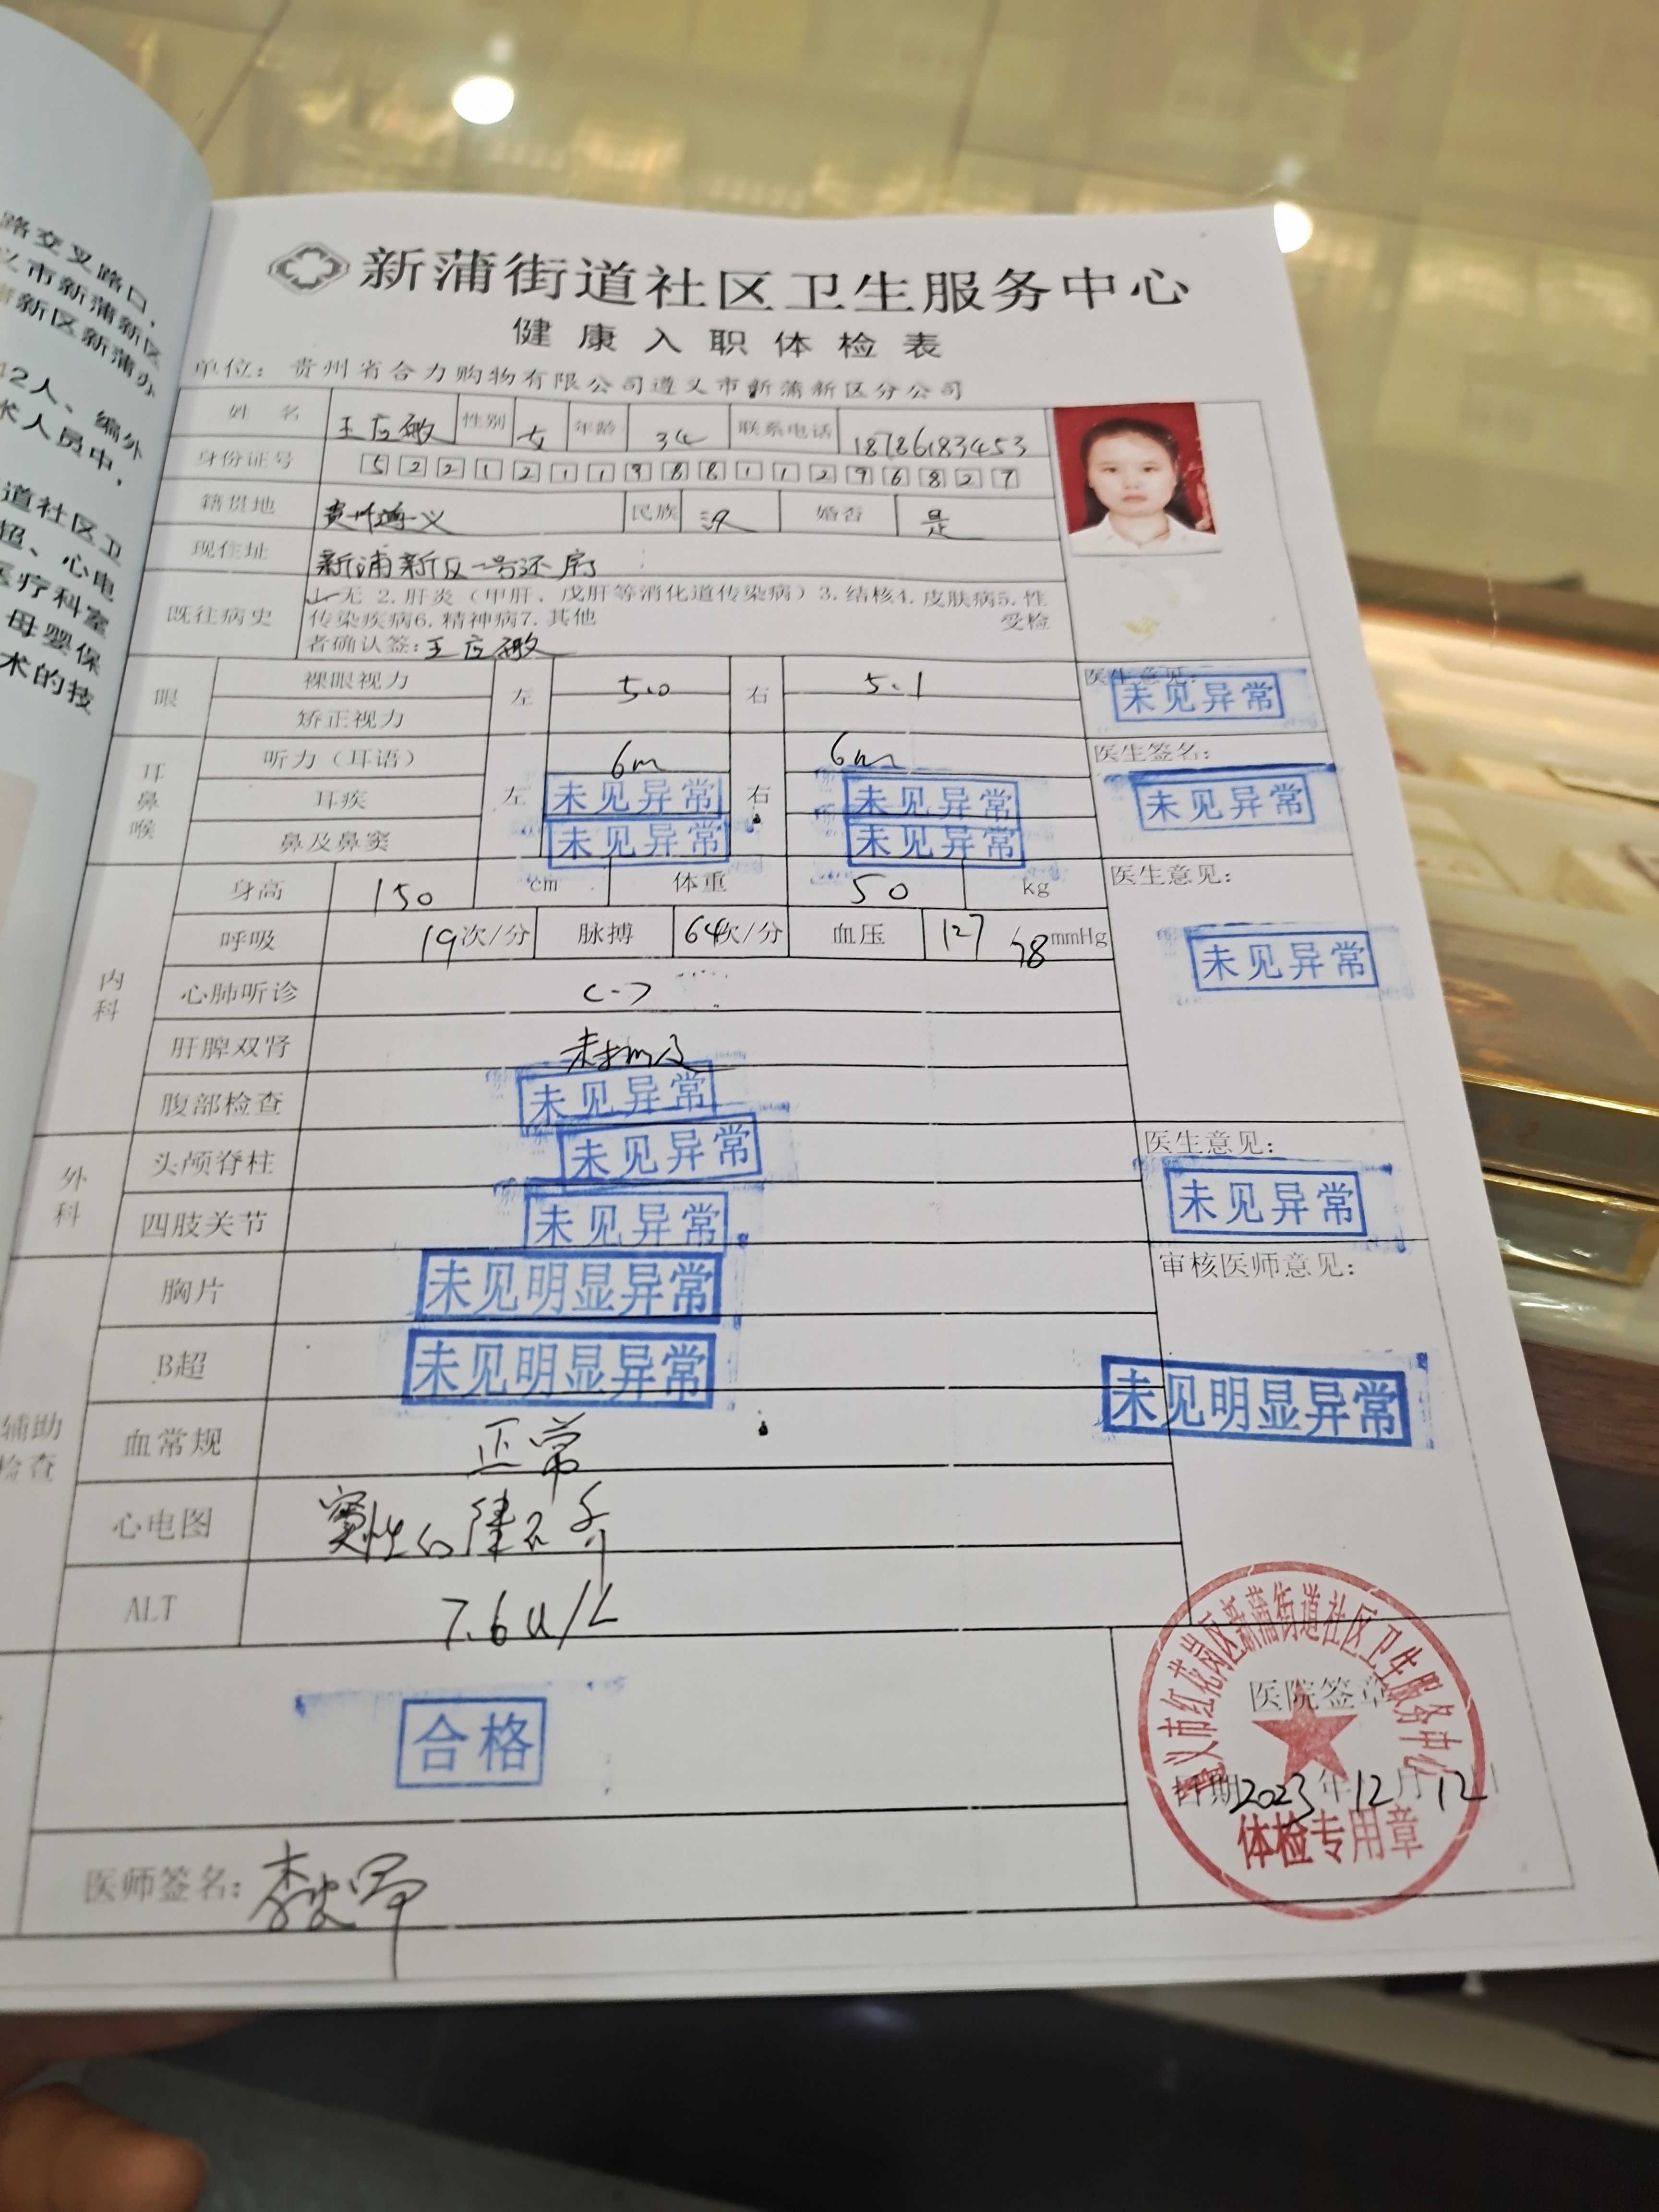 路交叉路口，
义市新蒲新区
新区新蒲办
12人、编外
术人员中，
道社区卫
超、心电
医疗科室
母婴保
术的技
新蒲街道社区卫生服务中心
健康入职体检表
单位：贵州省合力购物有限公司遵义市新蒲新区分公司
姓 名 王应敏 性别 女 年龄 34 联系电话 18786183453
身份证号
籍贯地 贵州遵义 民族 汉 婚否 是
现住址 新浦新区一号还房
既往病史 1.无 2.肝炎（甲肝、戊肝等消化道传染病）3.结核4.皮肤病5.性
传染疾病6.精神病7.其他 受检
者确认签：王应敏
眼 裸眼视力 左 5.0 右 5.1 医生意见：
未见异常
矫正视力
耳鼻喉 听力（耳语） 左 6m 右 6m 医生签名：
耳疾 未见异常 未见异常 未见异常
鼻及鼻窦 未见异常 未见异常
内科 身高 150 cm 体重 50 kg 医生意见：
呼吸 19次/分 脉搏 64次/分 血压 127 mmHg
未见异常
心肺听诊 (-)
肝脾双肾 未扪及
腹部检查 未见异常
外科 头颅脊柱 未见异常 医生意见：
四肢关节 未见异常 未见异常
辅助检查 胸片 未见明显异常 审核医师意见：
B超 未见明显异常 未见明显异常
血常规 正常
心电图 窦性心律不齐
ALT 7.6u/L
合格
医院签章
遵义市红花岗区新蒲街道社区卫生服务中心
日期2023年12月12日
体检专用章
医师签名：